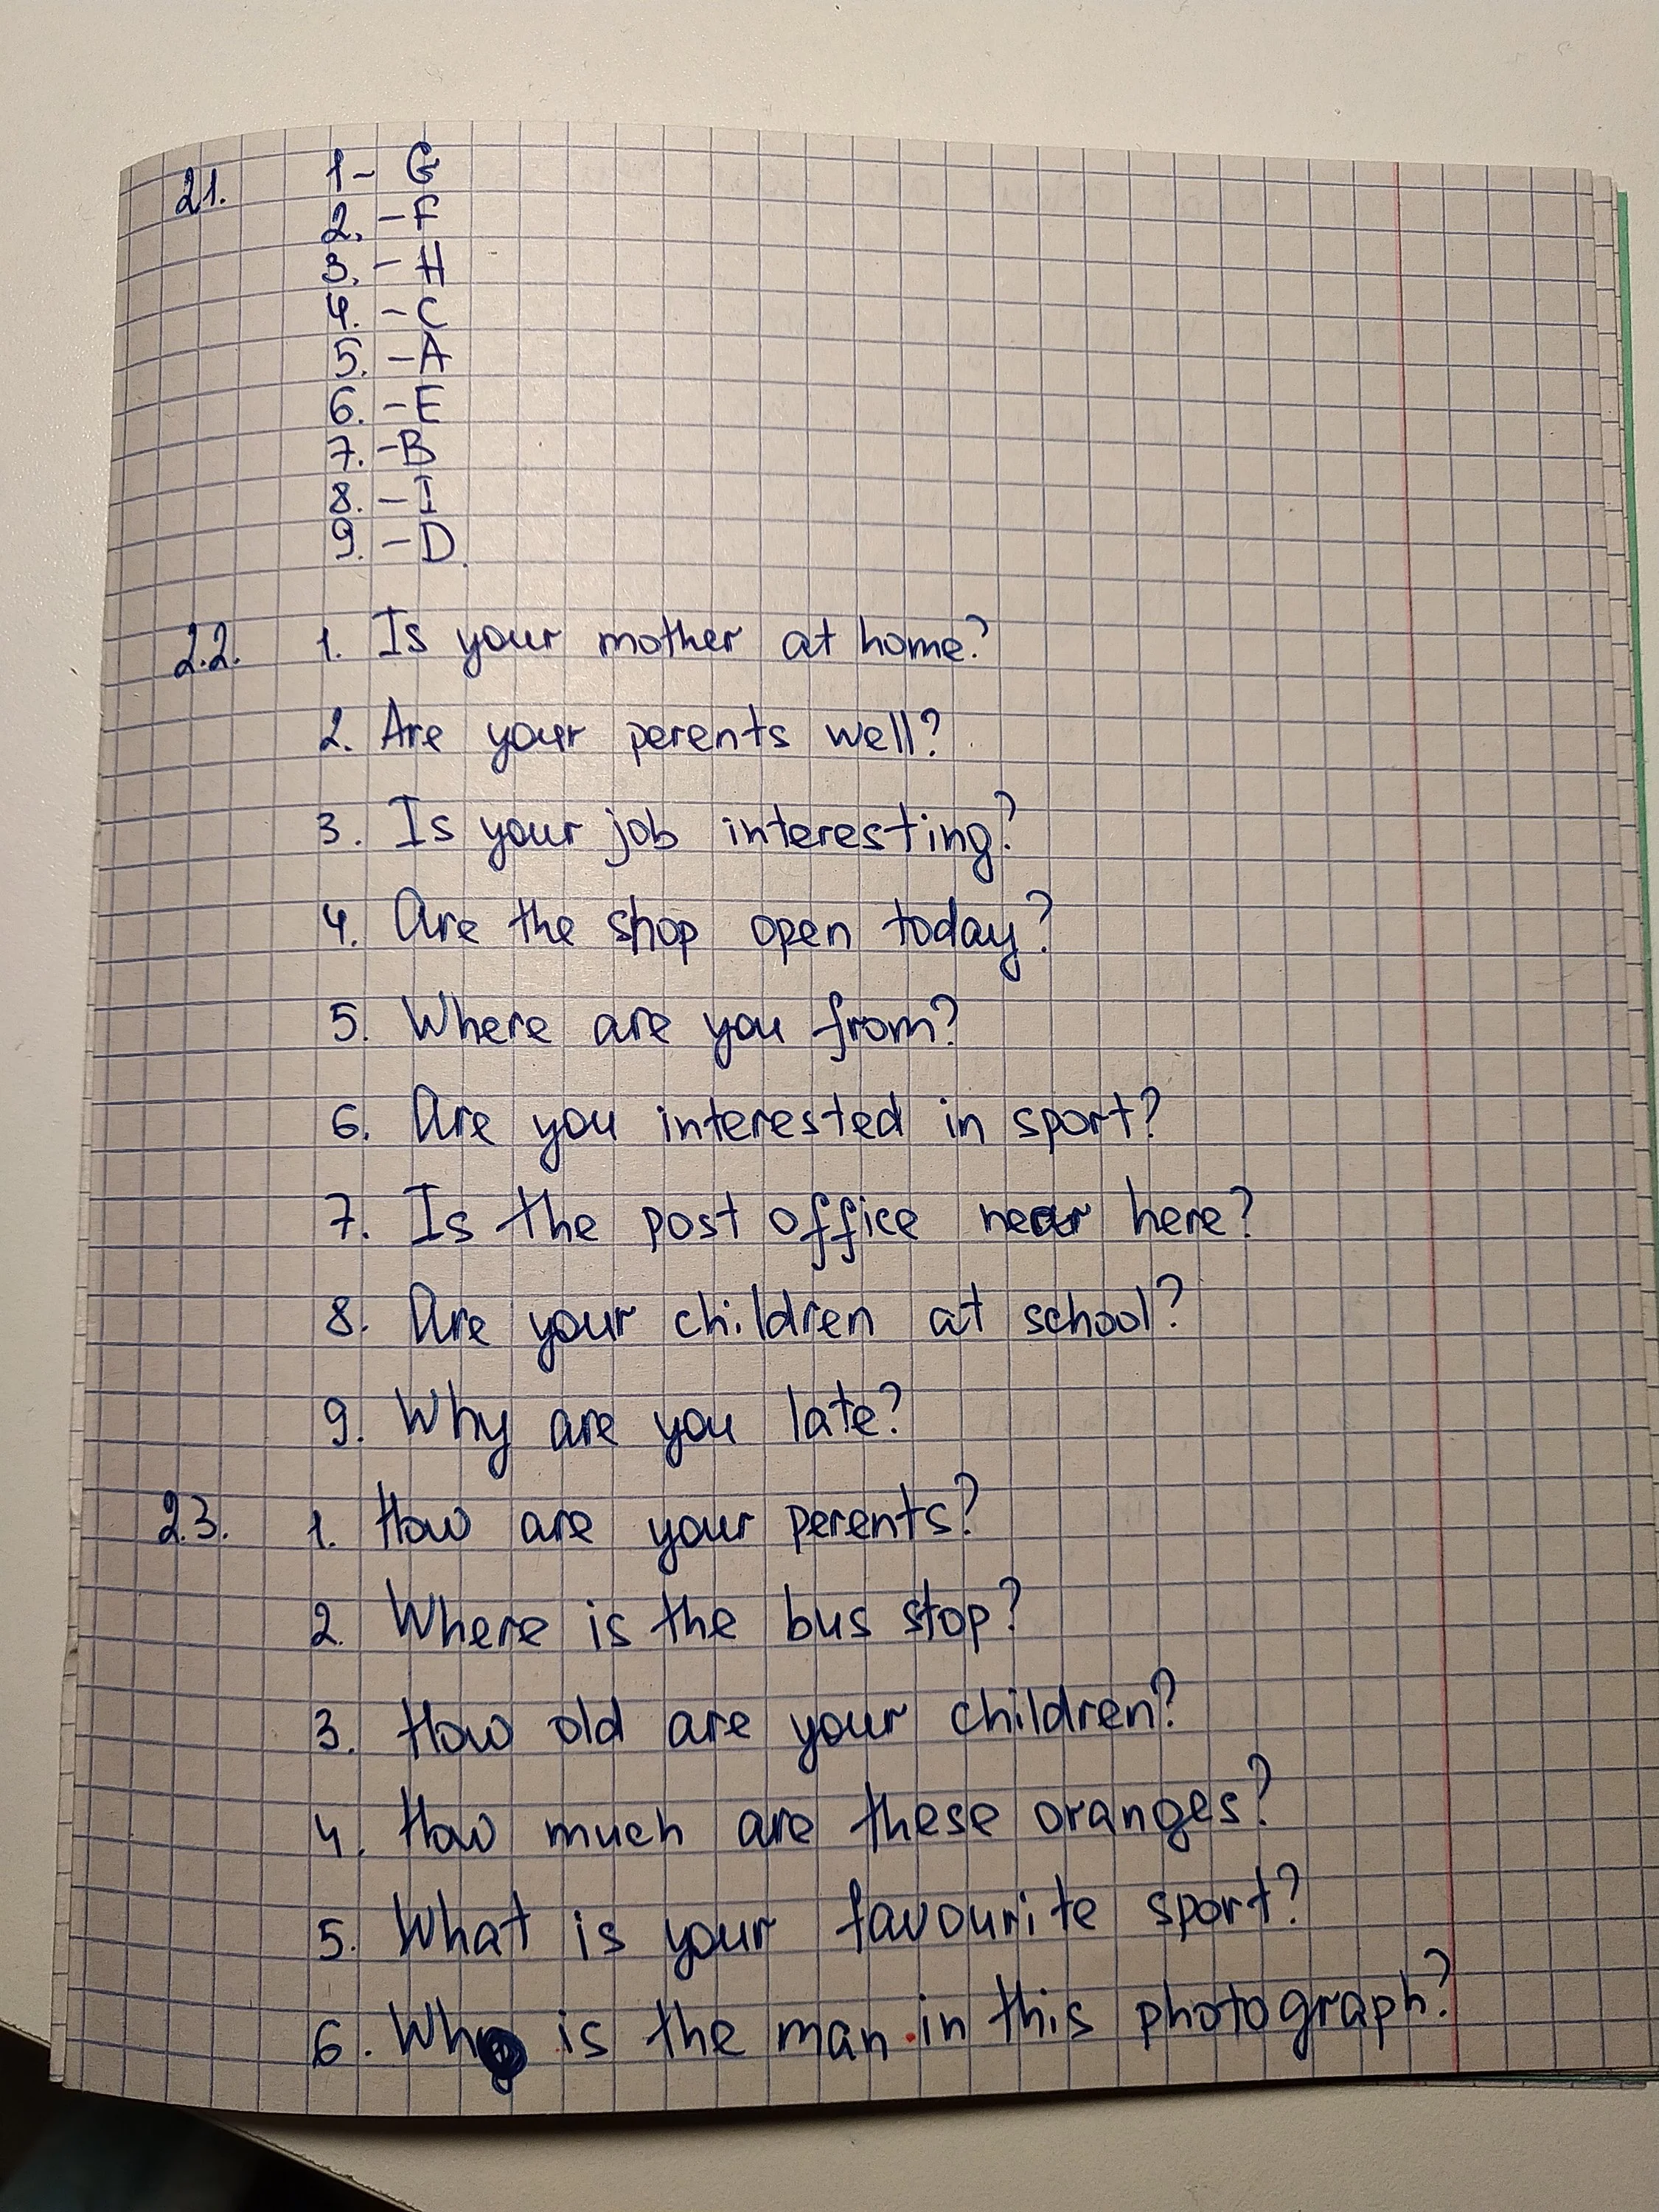 21. 1- G
2. - F
3. - H
4. - C
5. - A
6. - E
7. - B
8. - I
9. - D.
2.2. 1. Is your mother at home?
2. Are your perents well?
3. Is your job interesting?
4. Are the shop open today?
5. Where are you from?
6. Are you interested in sport?
7. Is the post office near here?
8. Are your children at school?
9. Why are you late?
2.3. 1. How are your perents?
2. Where is the bus stop?
3. How old are your children?
4. How much are these oranges?
5. What is your favourite sport?
6. Who is the man in this photograph?